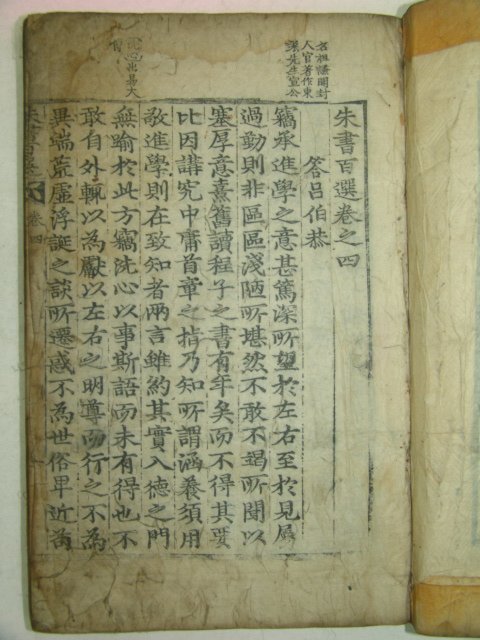 名祖謙開封
人官著作東
萊先生宣公
朱書百選卷之四
答呂伯恭
竊承進學之意甚篤深所望於左右至於見屬
過勤則非區區淺陋所堪然不敢不竭所聞以
塞厚意熹舊讀程子之書有年矣而不得其要
比因講究中庸首章之指乃知所謂涵養須用
敬進學則在致知者兩言雖約其實入德之門
洗心出易大
無踰於此方竊洗心以事斯語而未有得也不
敢自外輒以為獻以左右之明尊而行之不為
異端荒虛浮誕之談所遷惑不為世俗卑近苟
卷四